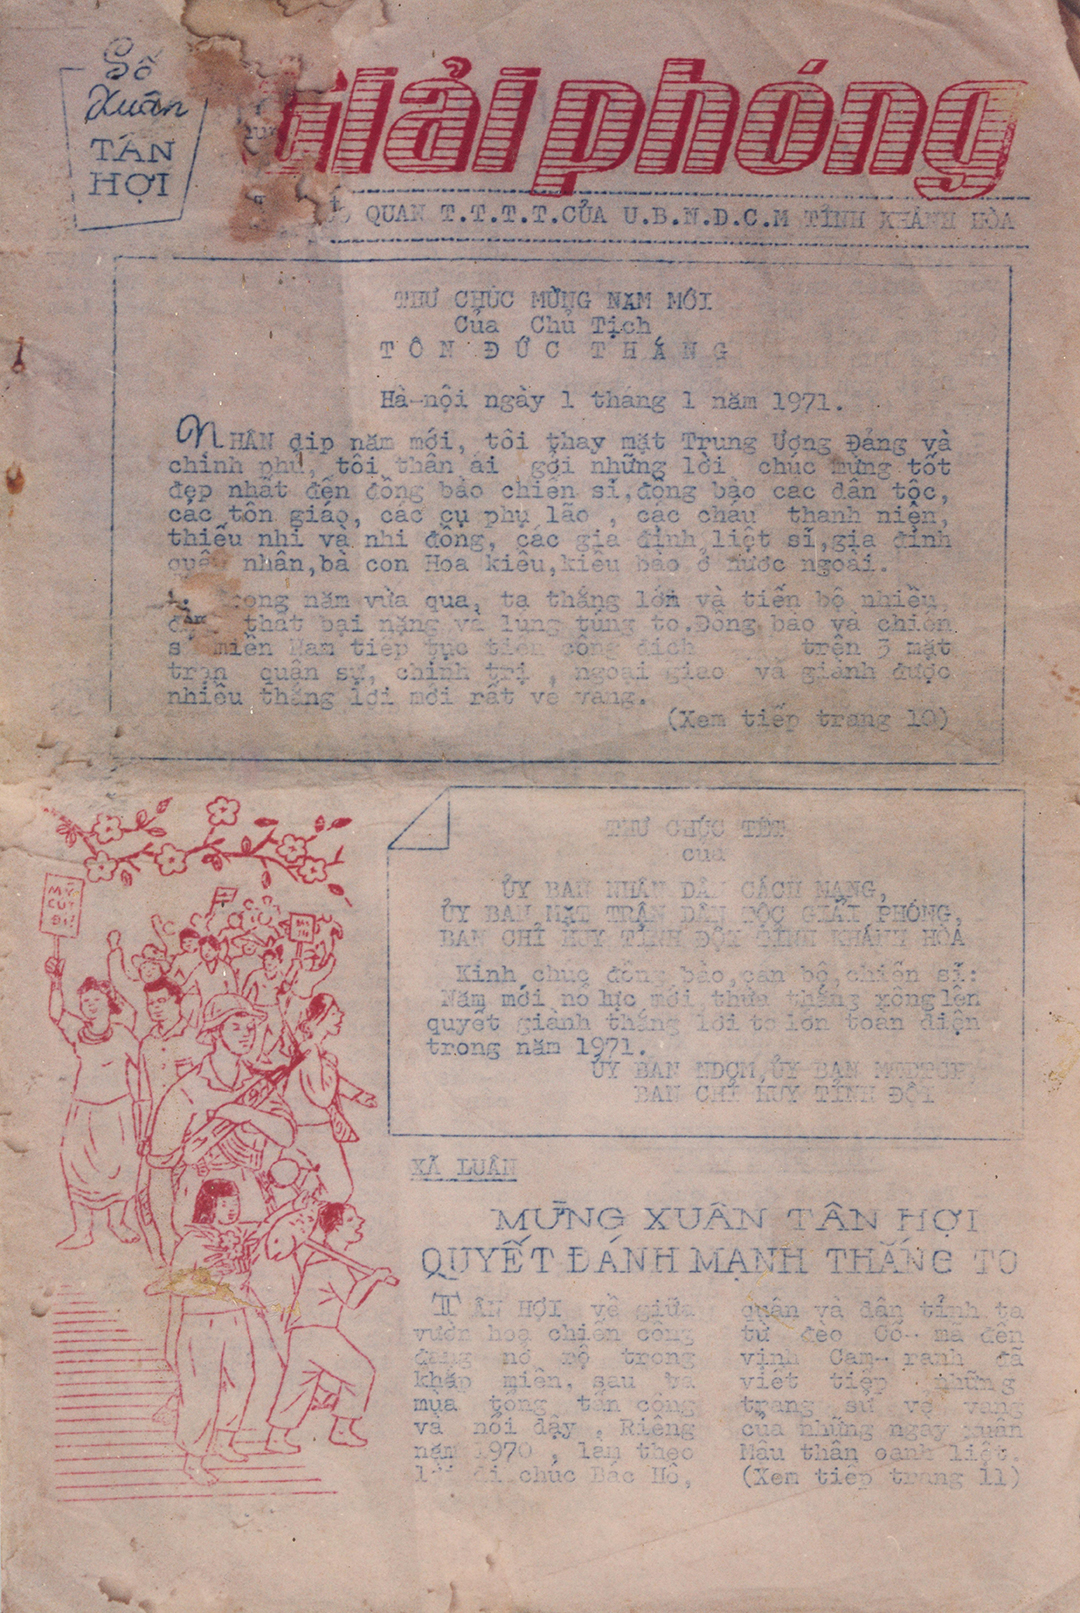 Số
Xuân
TÂN
HỢI
Giải phóng
QUAN T.T.T.T.CỦA U.B.N.D.C.M TỈNH KHÁNH HÒA
THƯ CHÚC MỪNG NĂM MỚI
Của Chủ Tịch
TÔN ĐỨC THẮNG
Hà-nội ngày 1 tháng 1 năm 1971.
NHÂN dịp năm mới, tôi thay mặt Trung Ương Đảng và
chính phủ, tôi thân ái gởi những lời chúc mừng tốt
đẹp nhất đến đồng bào chiến sĩ,đồng bào các dân tộc,
các tôn giáo, các cụ phụ lão , các cháu thanh niên,
thiếu nhi và nhi đồng, các gia đình liệt sĩ,gia đình
quân nhân,bà con Hoa kiều,kiều bào ở nước ngoài.
Trong năm vừa qua, ta thắng lớn và tiến bộ nhiều,
thất bại nặng và lúng túng to.Đồng bào và chiến
sĩ miền Nam tiếp tục tiến công địch trên 3 mặt
trận quân sự, chính trị , ngoại giao và giành được
nhiều thắng lợi mới rất vẻ vang.
(Xem tiếp trang 10)
MỸ
CÚT
ĐI!
THƯ CHÚC TẾT
của
ỦY BAN NHÂN DÂN CÁCH MẠNG,
ỦY BAN MẶT TRẬN DÂN TỘC GIẢI PHÓNG,
BAN CHỈ HUY TỈNH ĐỘI TỈNH KHÁNH HÒA
Kính chúc đồng bào,cán bộ,chiến sĩ:
Năm mới nổ lực mới thừa thắng xông lên
quyết giành thắng lợi to lớn toàn diện
trong năm 1971.
ỦY BAN NDCM,ỦY BAN MTDTGP
BAN CHỈ HUY TỈNH ĐỘI
XÃ LUẬN
MỪNG XUÂN TÂN HỢI
QUYẾT ĐÁNH MẠNH THẮNG TO
TÂN HỢI về giữa
vườn hoa chiến công
đang nở rộ trong
khắp miền, sau ba
mùa tổng tấn công
và nổi dậy , Riêng
năm 1970 , làm theo
lời di chúc Bác Hồ,
quân và dân tỉnh ta
từ đèo Cổ- mã đến
vịnh Cam- ranh đã
viết tiếp những
trang sử vẻ vang
của những ngày xuân
Mậu thân oanh liệt.
(Xem tiếp trang 11)